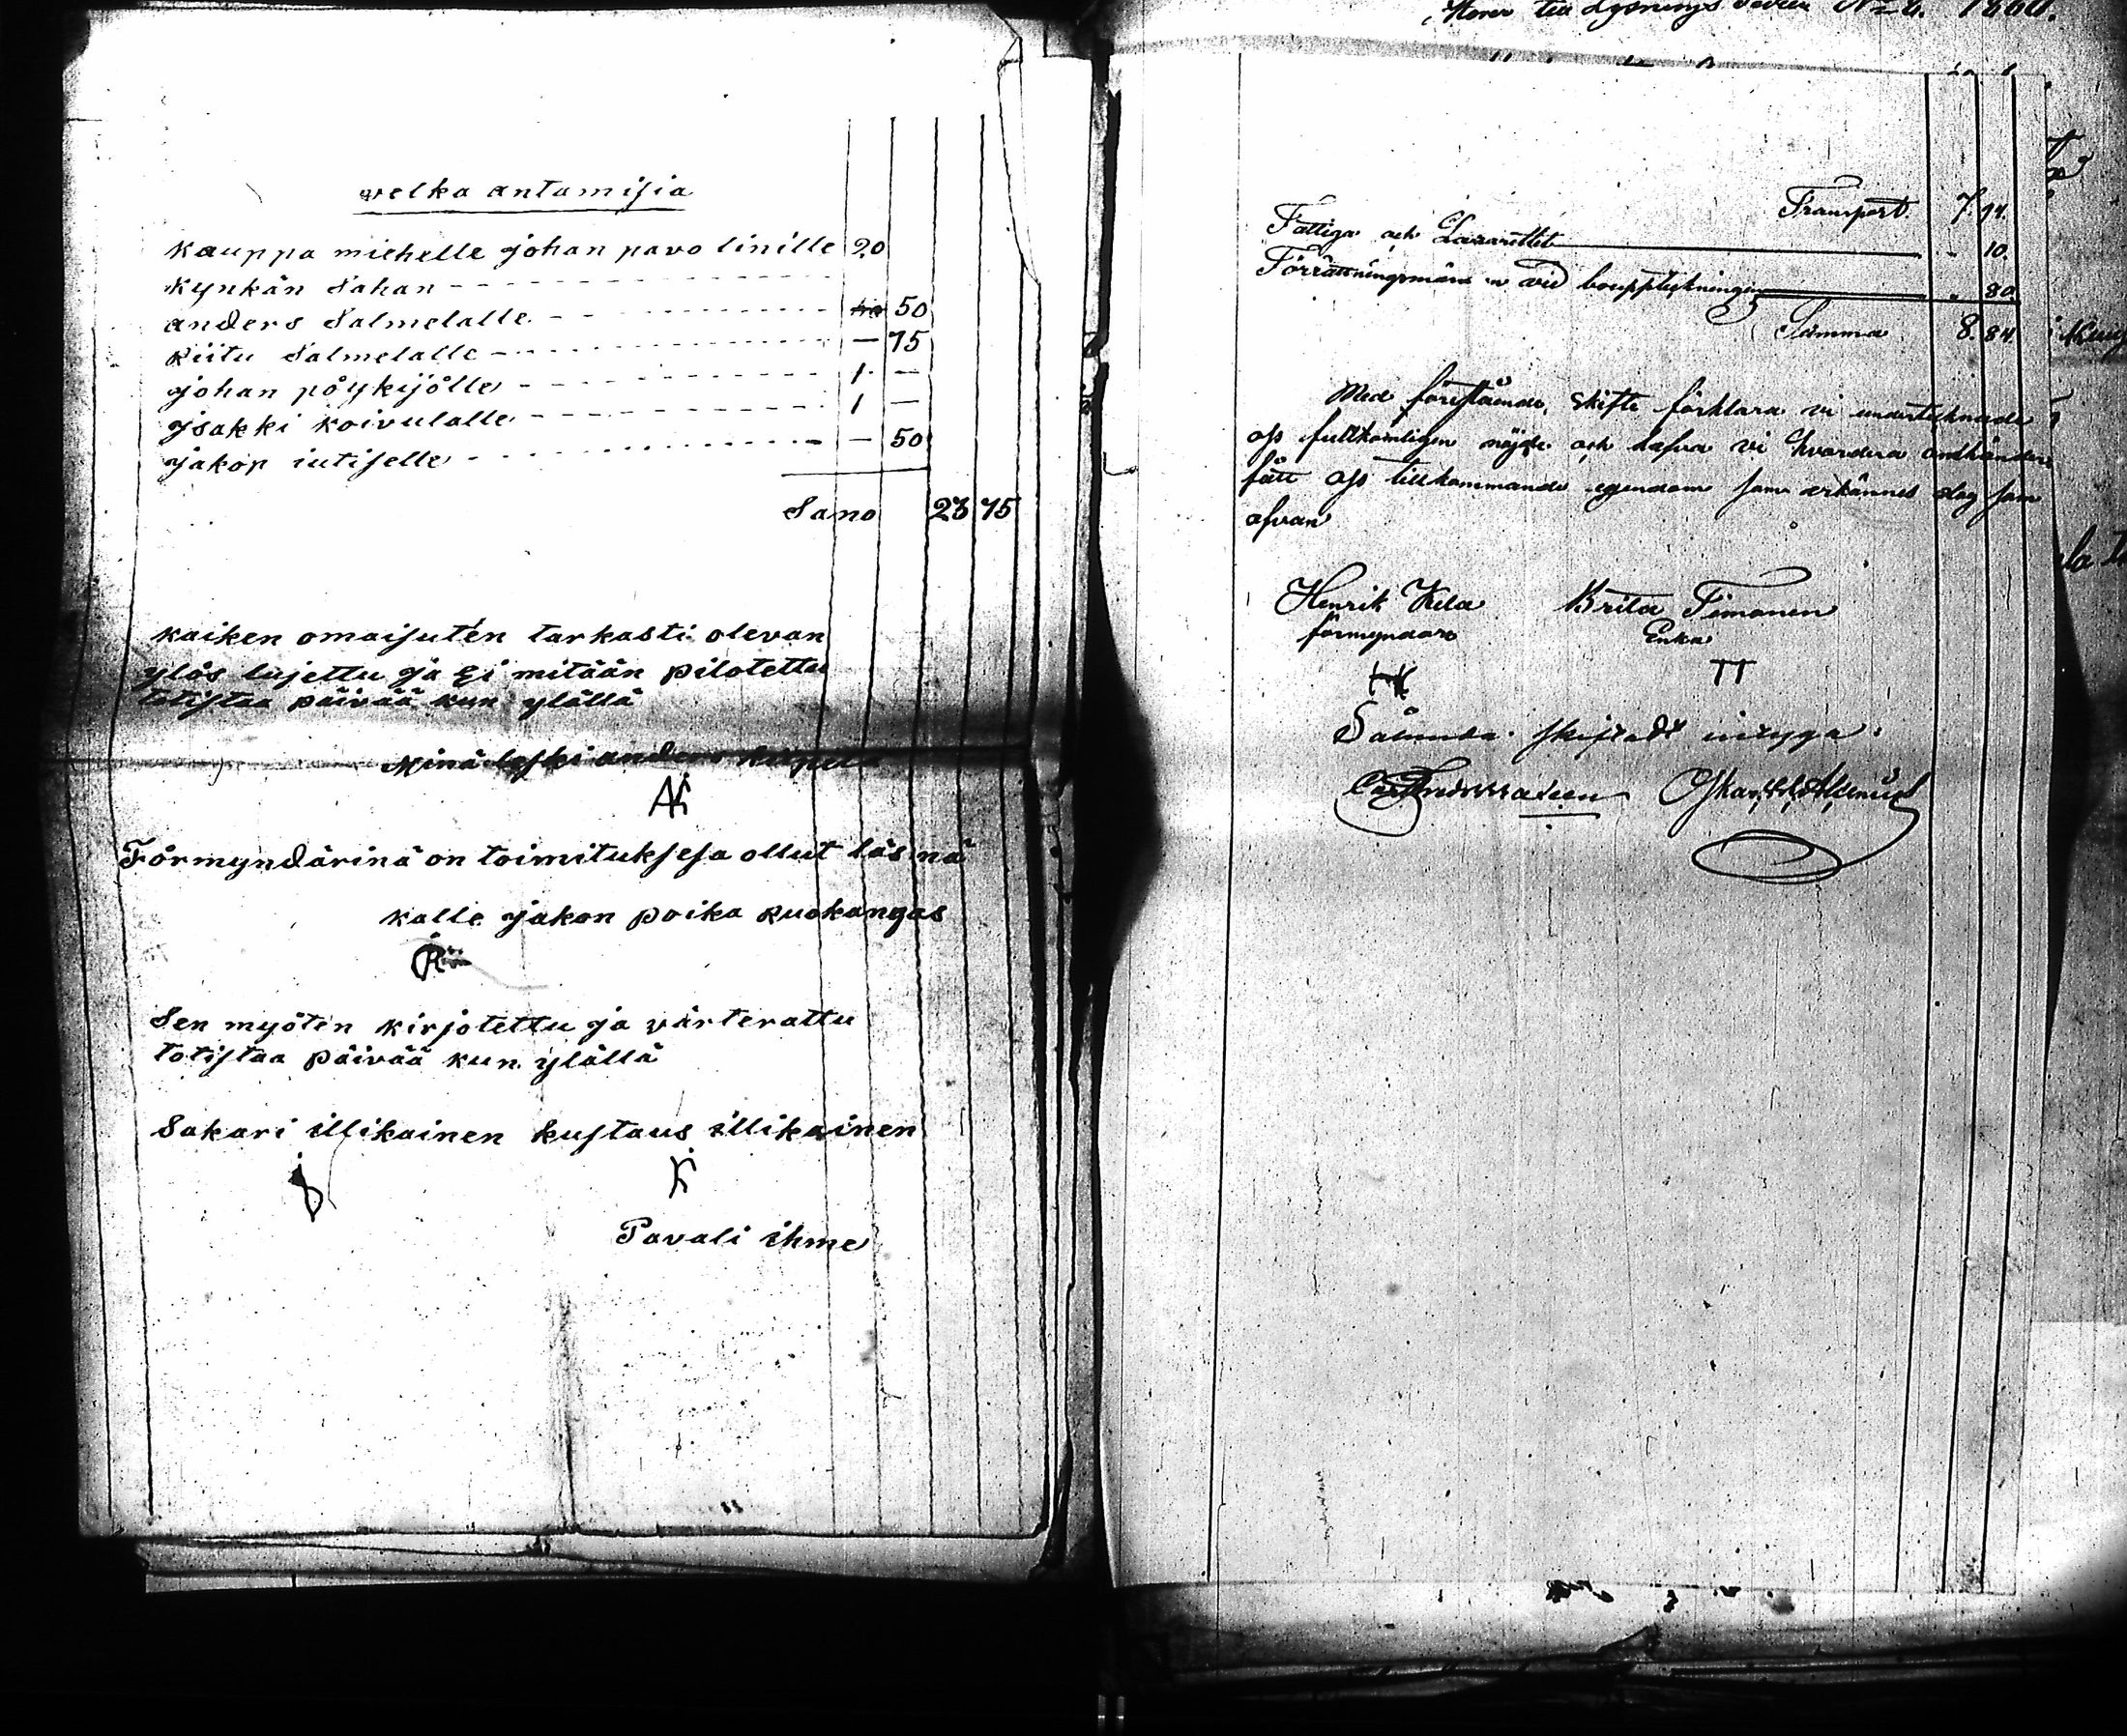 velka antamisia
kauppa miehelle johan pavo linille 20
kynkän Sahan
anders Salmelalle 50
kiitu Salmelalle — 75
johan pöykijölle 1 —
jsakki koivulalle 1 —
jakop iutiselle — 50
Sano 23 75
kaiken omaisuten tarkasti olevan
ylös lujettu ja Ei mitään pilotettu
totistaa päivää kun ylällä
Minä leski anders
AK
Förmyndärinä on toimituksesa ollut läsnä
kalle jakon poika Ruokangas
Sen myöten kirjotettu ja värterattu
totistaa päivää kun ylällä
Sakari illikainen kustaus illikainen
K
Pavali ihme
Lysnings N=o 1860.
Transport. 7 94.
Fattiga och Lazarettet — „ 10.
Förrättningsmännen vid bouppteckningen „ 80.
Summa 8. 84.
Med föreståënde, Skifte förklara vi undertecknade
oss fullkomligen nöjde och hafva vi hvardera
fått oss tillkommande egendom som erkännes dag som
ofvan
Henrik Kela Brita Timonen
förmyndare Enka
HK TT
Sålunda skiftadt intyga.